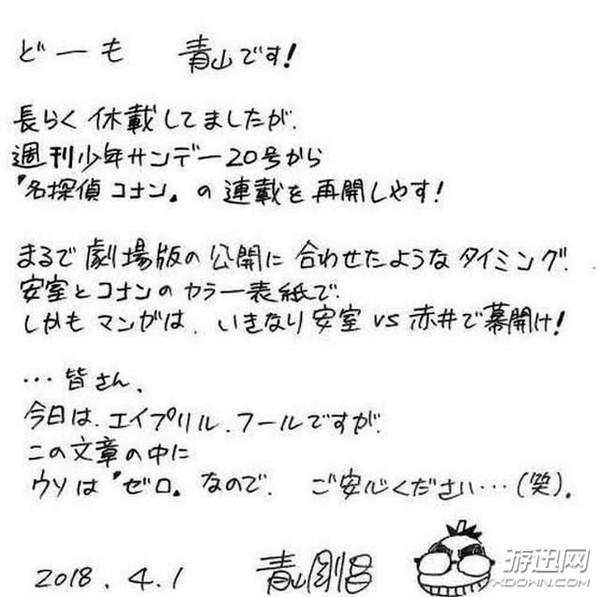 どーも 青山です!
長らく休載してましたが、
週刊少年サンデー20号から
『名探偵コナン』の連載を再開しやす!
まるで劇場版の公開に合わせたようなタイミング、
安室とコナンのカラー表紙で、
しかもマンガは、いきなり安室vs赤井で幕開け!
…皆さん、
今日は、エイプリル、フールですが、
この文章の中に
ウソは『ゼロ』なので、 ご安心ください…(笑)。
2018.4.1 青山剛昌
游迅网
XDOWN.COM